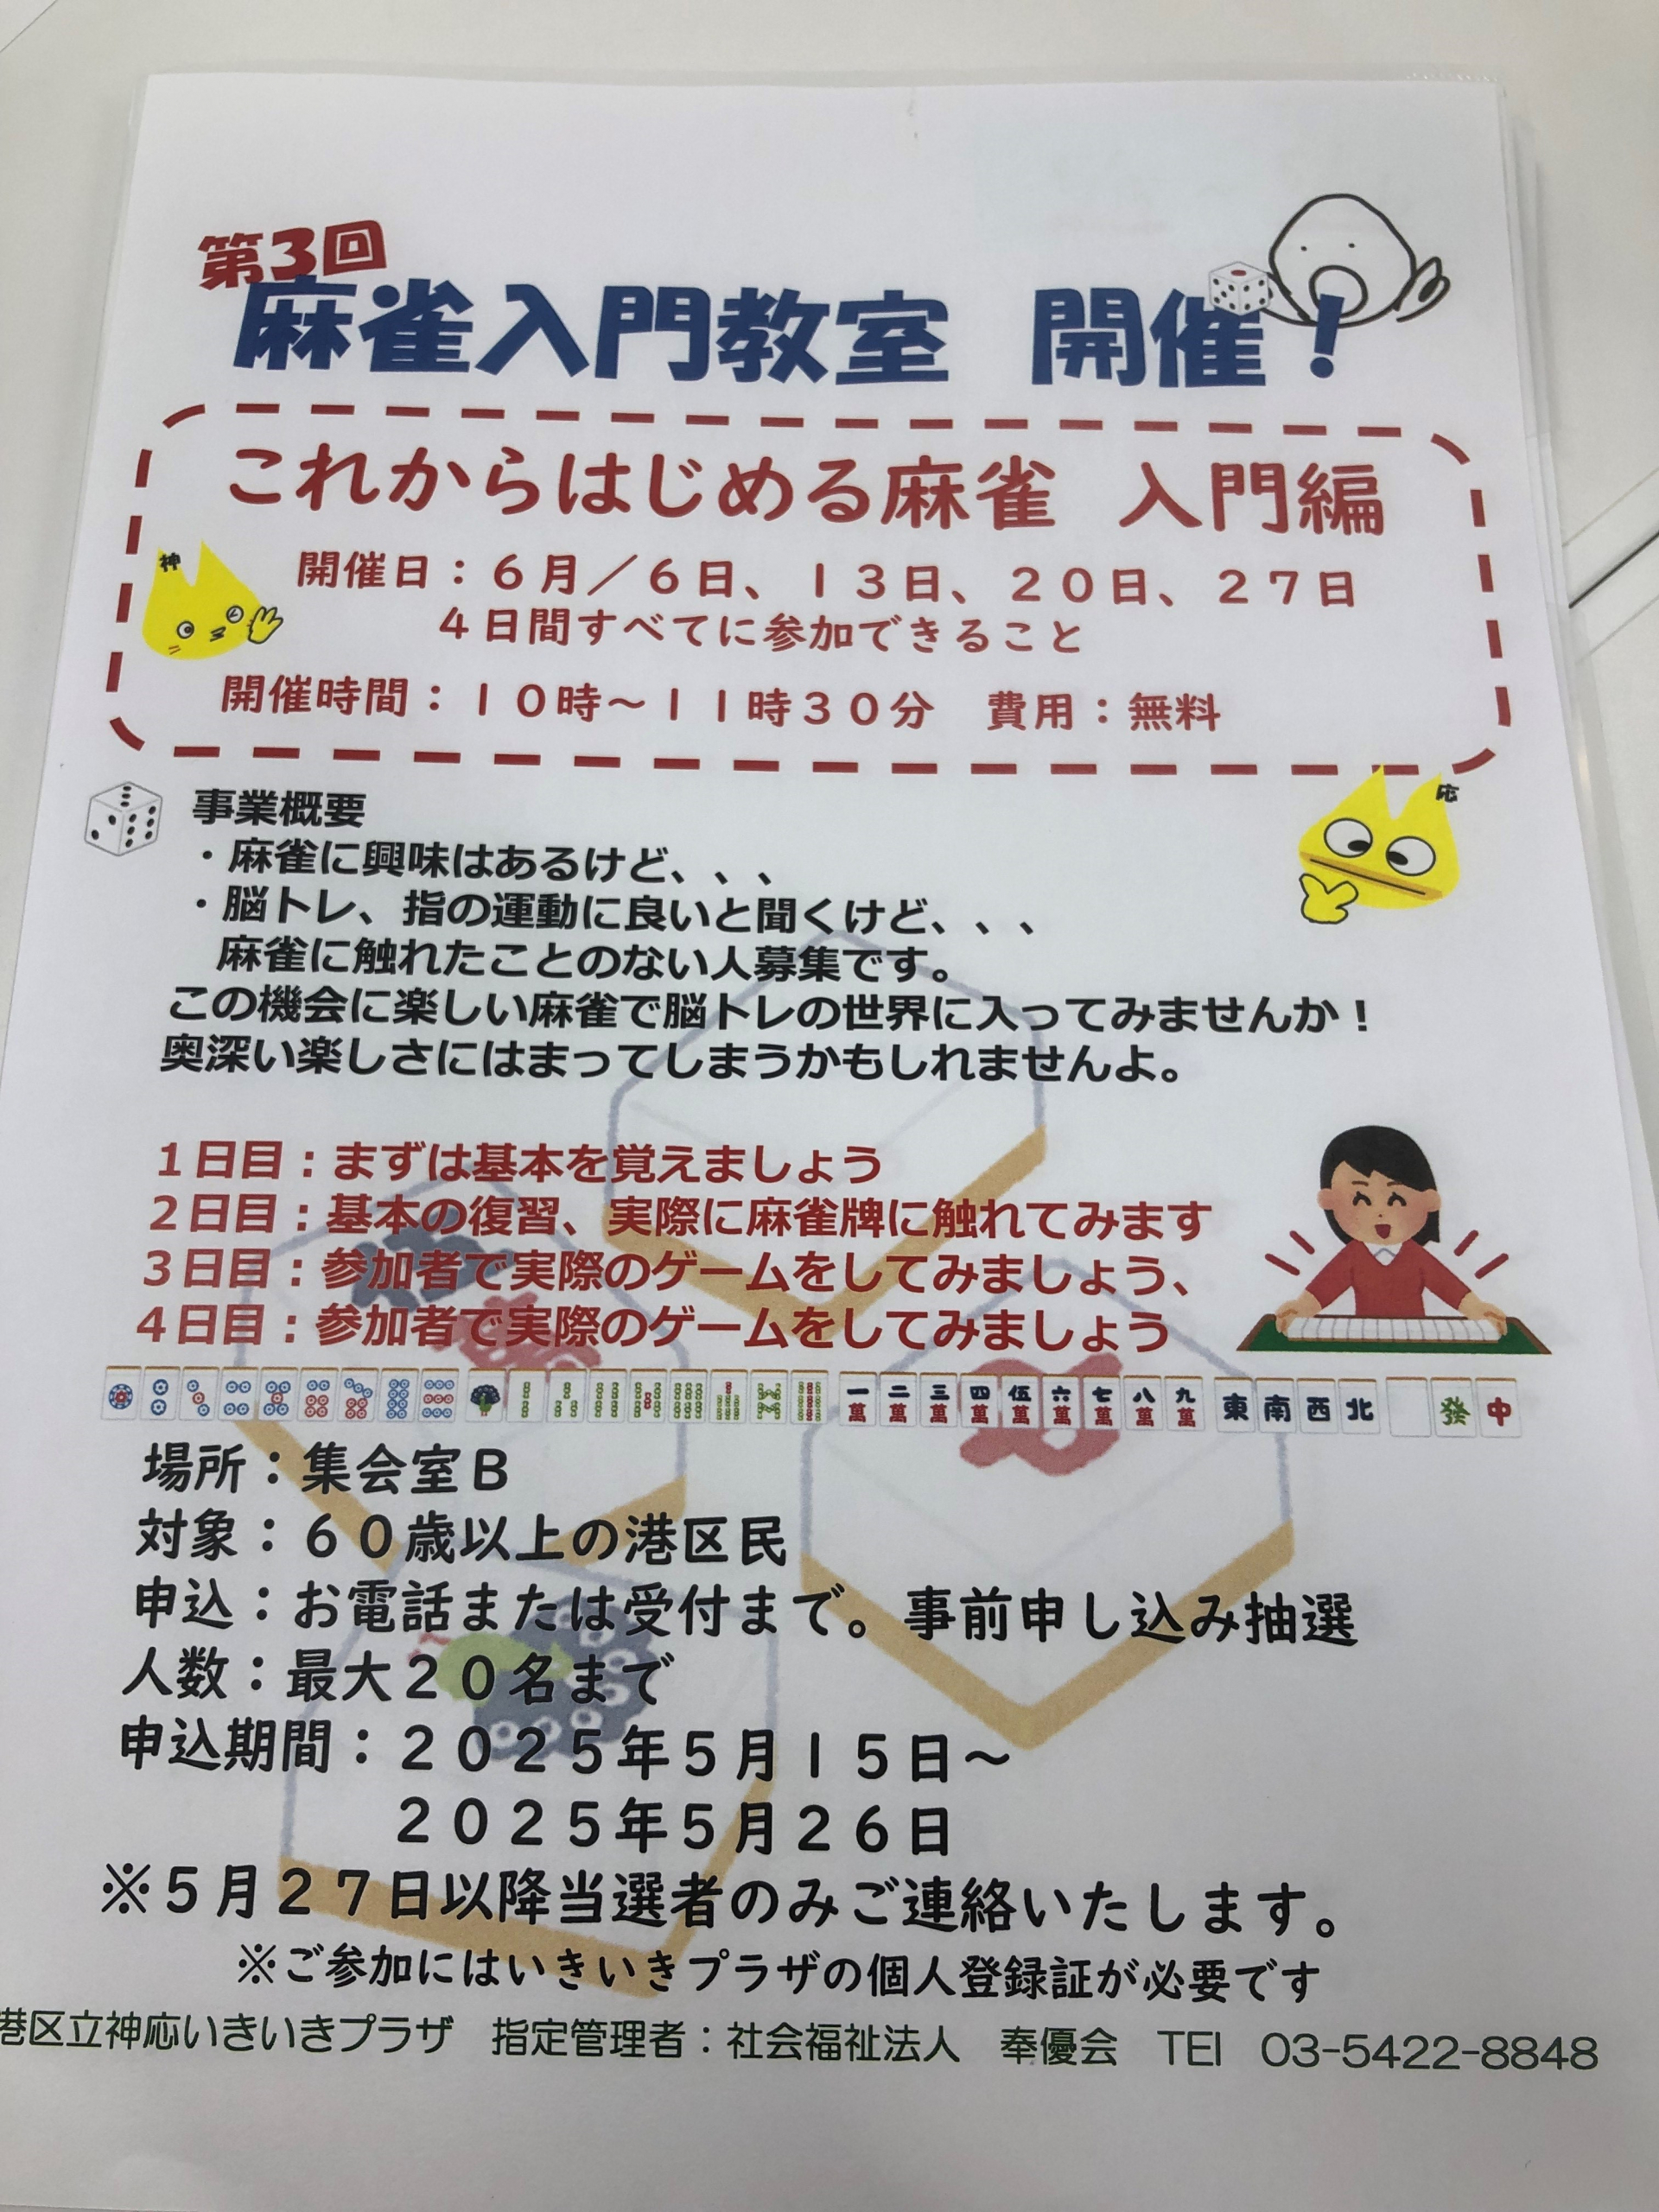 第3回
麻雀入門教室 開催！
これからはじめる麻雀 入門編
神
開催日：６月／６日、１３日、２０日、２７日
４日間すべてに参加できること
開催時間：１０時～１１時３０分 費用：無料
応
事業概要
・麻雀に興味はあるけど、、、
・脳トレ、指の運動に良いと聞くけど、、、
麻雀に触れたことのない人募集です。
この機会に楽しい麻雀で脳トレの世界に入ってみませんか！
奥深い楽しさにはまってしまうかもしれませんよ。
１日目：まずは基本を覚えましょう
２日目：基本の復習、実際に麻雀牌に触れてみます
３日目：参加者で実際のゲームをしてみましょう、
４日目：参加者で実際のゲームをしてみましょう
一萬 二萬 三萬 四萬 伍萬 六萬 七萬 八萬 九萬 東 南 西 北 發 中
場所：集会室Ｂ
対象：６０歳以上の港区民
申込：お電話または受付まで。事前申し込み抽選
人数：最大２０名まで
申込期間：２０２５年５月１５日～
２０２５年５月２６日
※５月２７日以降当選者のみご連絡いたします。
※ご参加にはいきいきプラザの個人登録証が必要です
港区立神応いきいきプラザ 指定管理者：社会福祉法人 奉優会 TEl 03-5422-8848